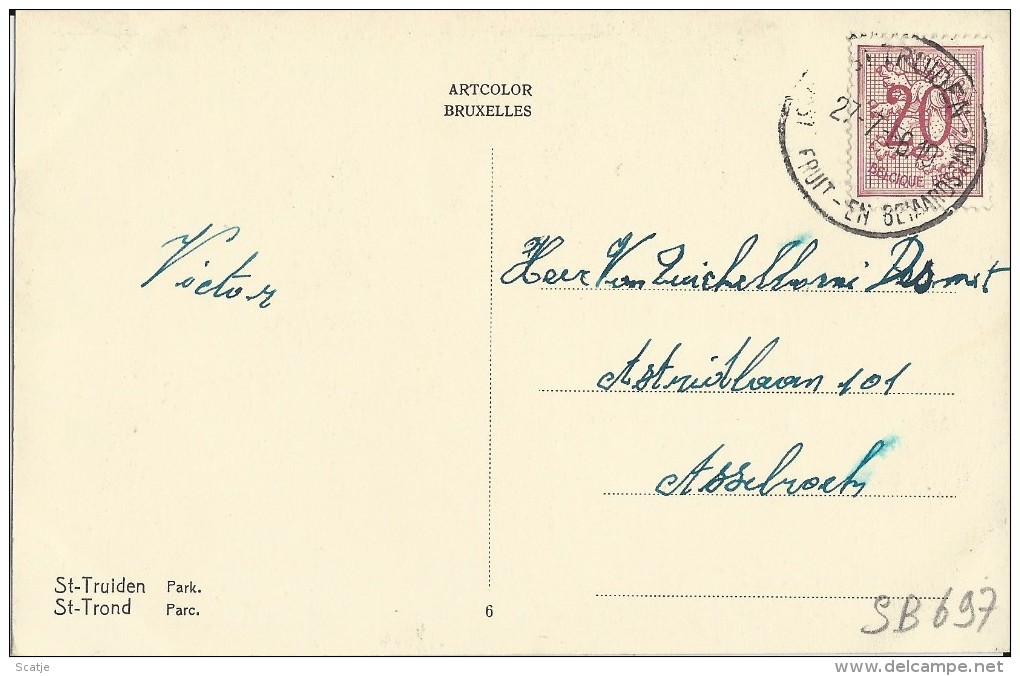 ARTCOLOR
BRUXELLES
20
BELGIQUE
ST TRUIDEN
27-7
FRUIT - EN BEWAARDSTAD
Victor
Heer Van Desmet
Astridlaan 101
Assebroek
St-Truiden Park.
St-Trond Parc.
6
SB697
Scatje
www.delcampe.net